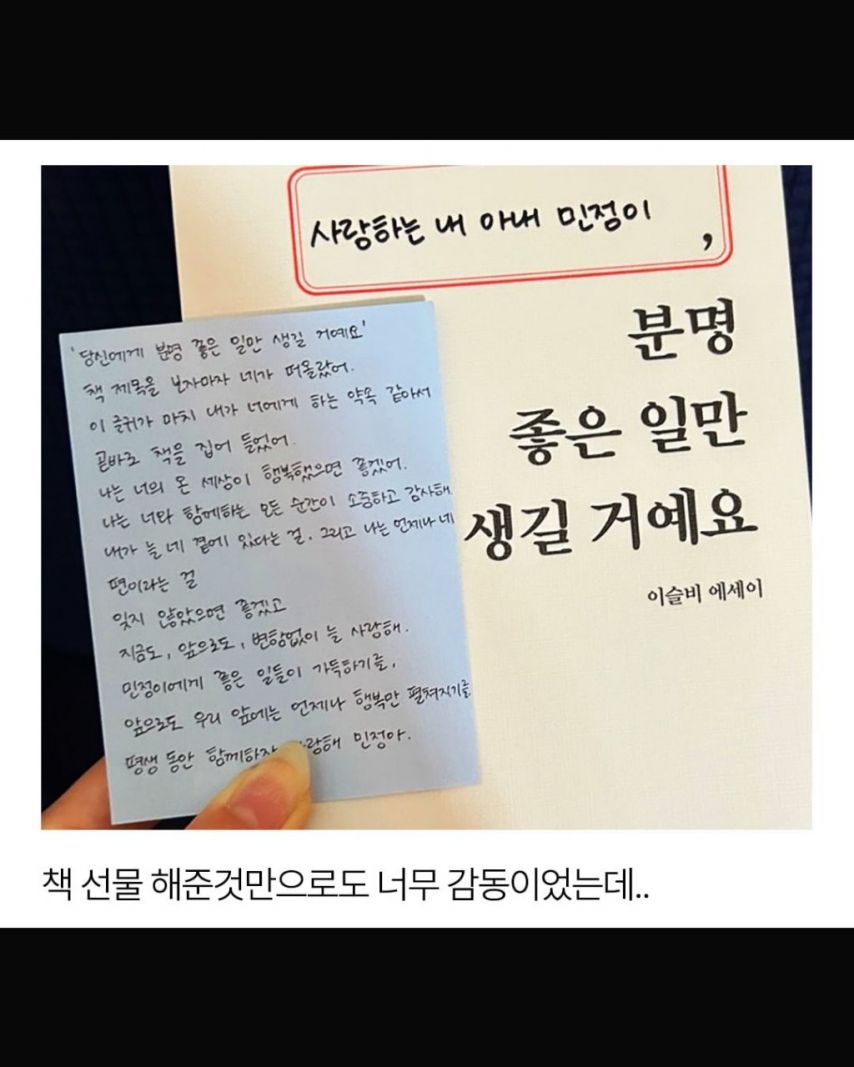 사랑하는 내 아내 민정이
,
분명
좋은 일만
생길 거예요
이슬비 에세이
'당신에게 분명 좋은 일만 생길 거예요'
책 제목을 보자마자 네가 떠올랐어.
이 글귀가 마치 내가 너에게 하는 약속 같아서
곧바로 책을 집어 들었어.
나는 너의 온 세상이 행복했으면 좋겠어.
나는 너와 함께하는 모든 순간이 소중하고 감사해
내가 늘 네 곁에 있다는 걸. 그리고 나는 언제나 네
편이라는 걸
잊지 않았으면 좋겠고
지금도, 앞으로도, 변함없이 늘 사랑해.
민정이에게 좋은 일들이 가득하기를,
앞으로도 우리 앞에는 언제나 행복만 펼쳐지기를
평생 동안 함께하자 민정아.
책 선물 해준것만으로도 너무 감동이었는데..